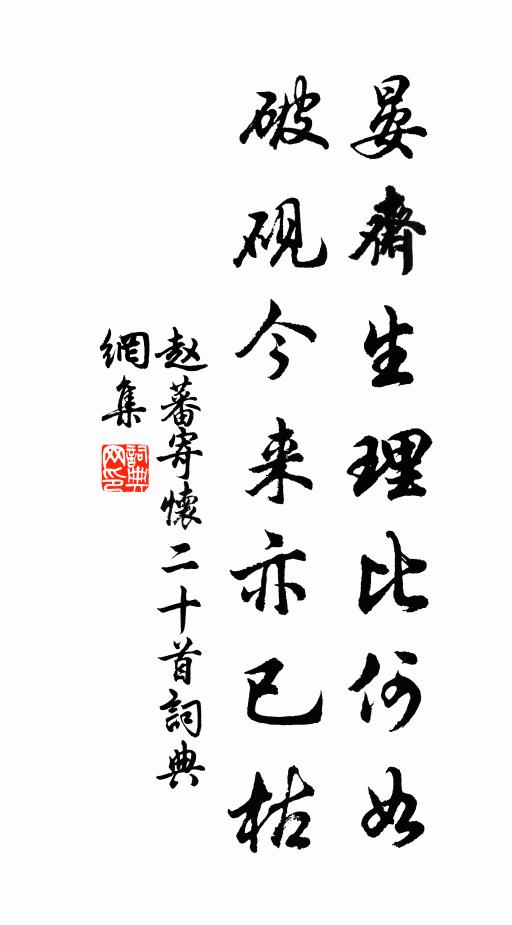 晏齋生理比何如
破硯今来亦已枯
赵蕃寄懷二十首詞典
網集
詞典
网印